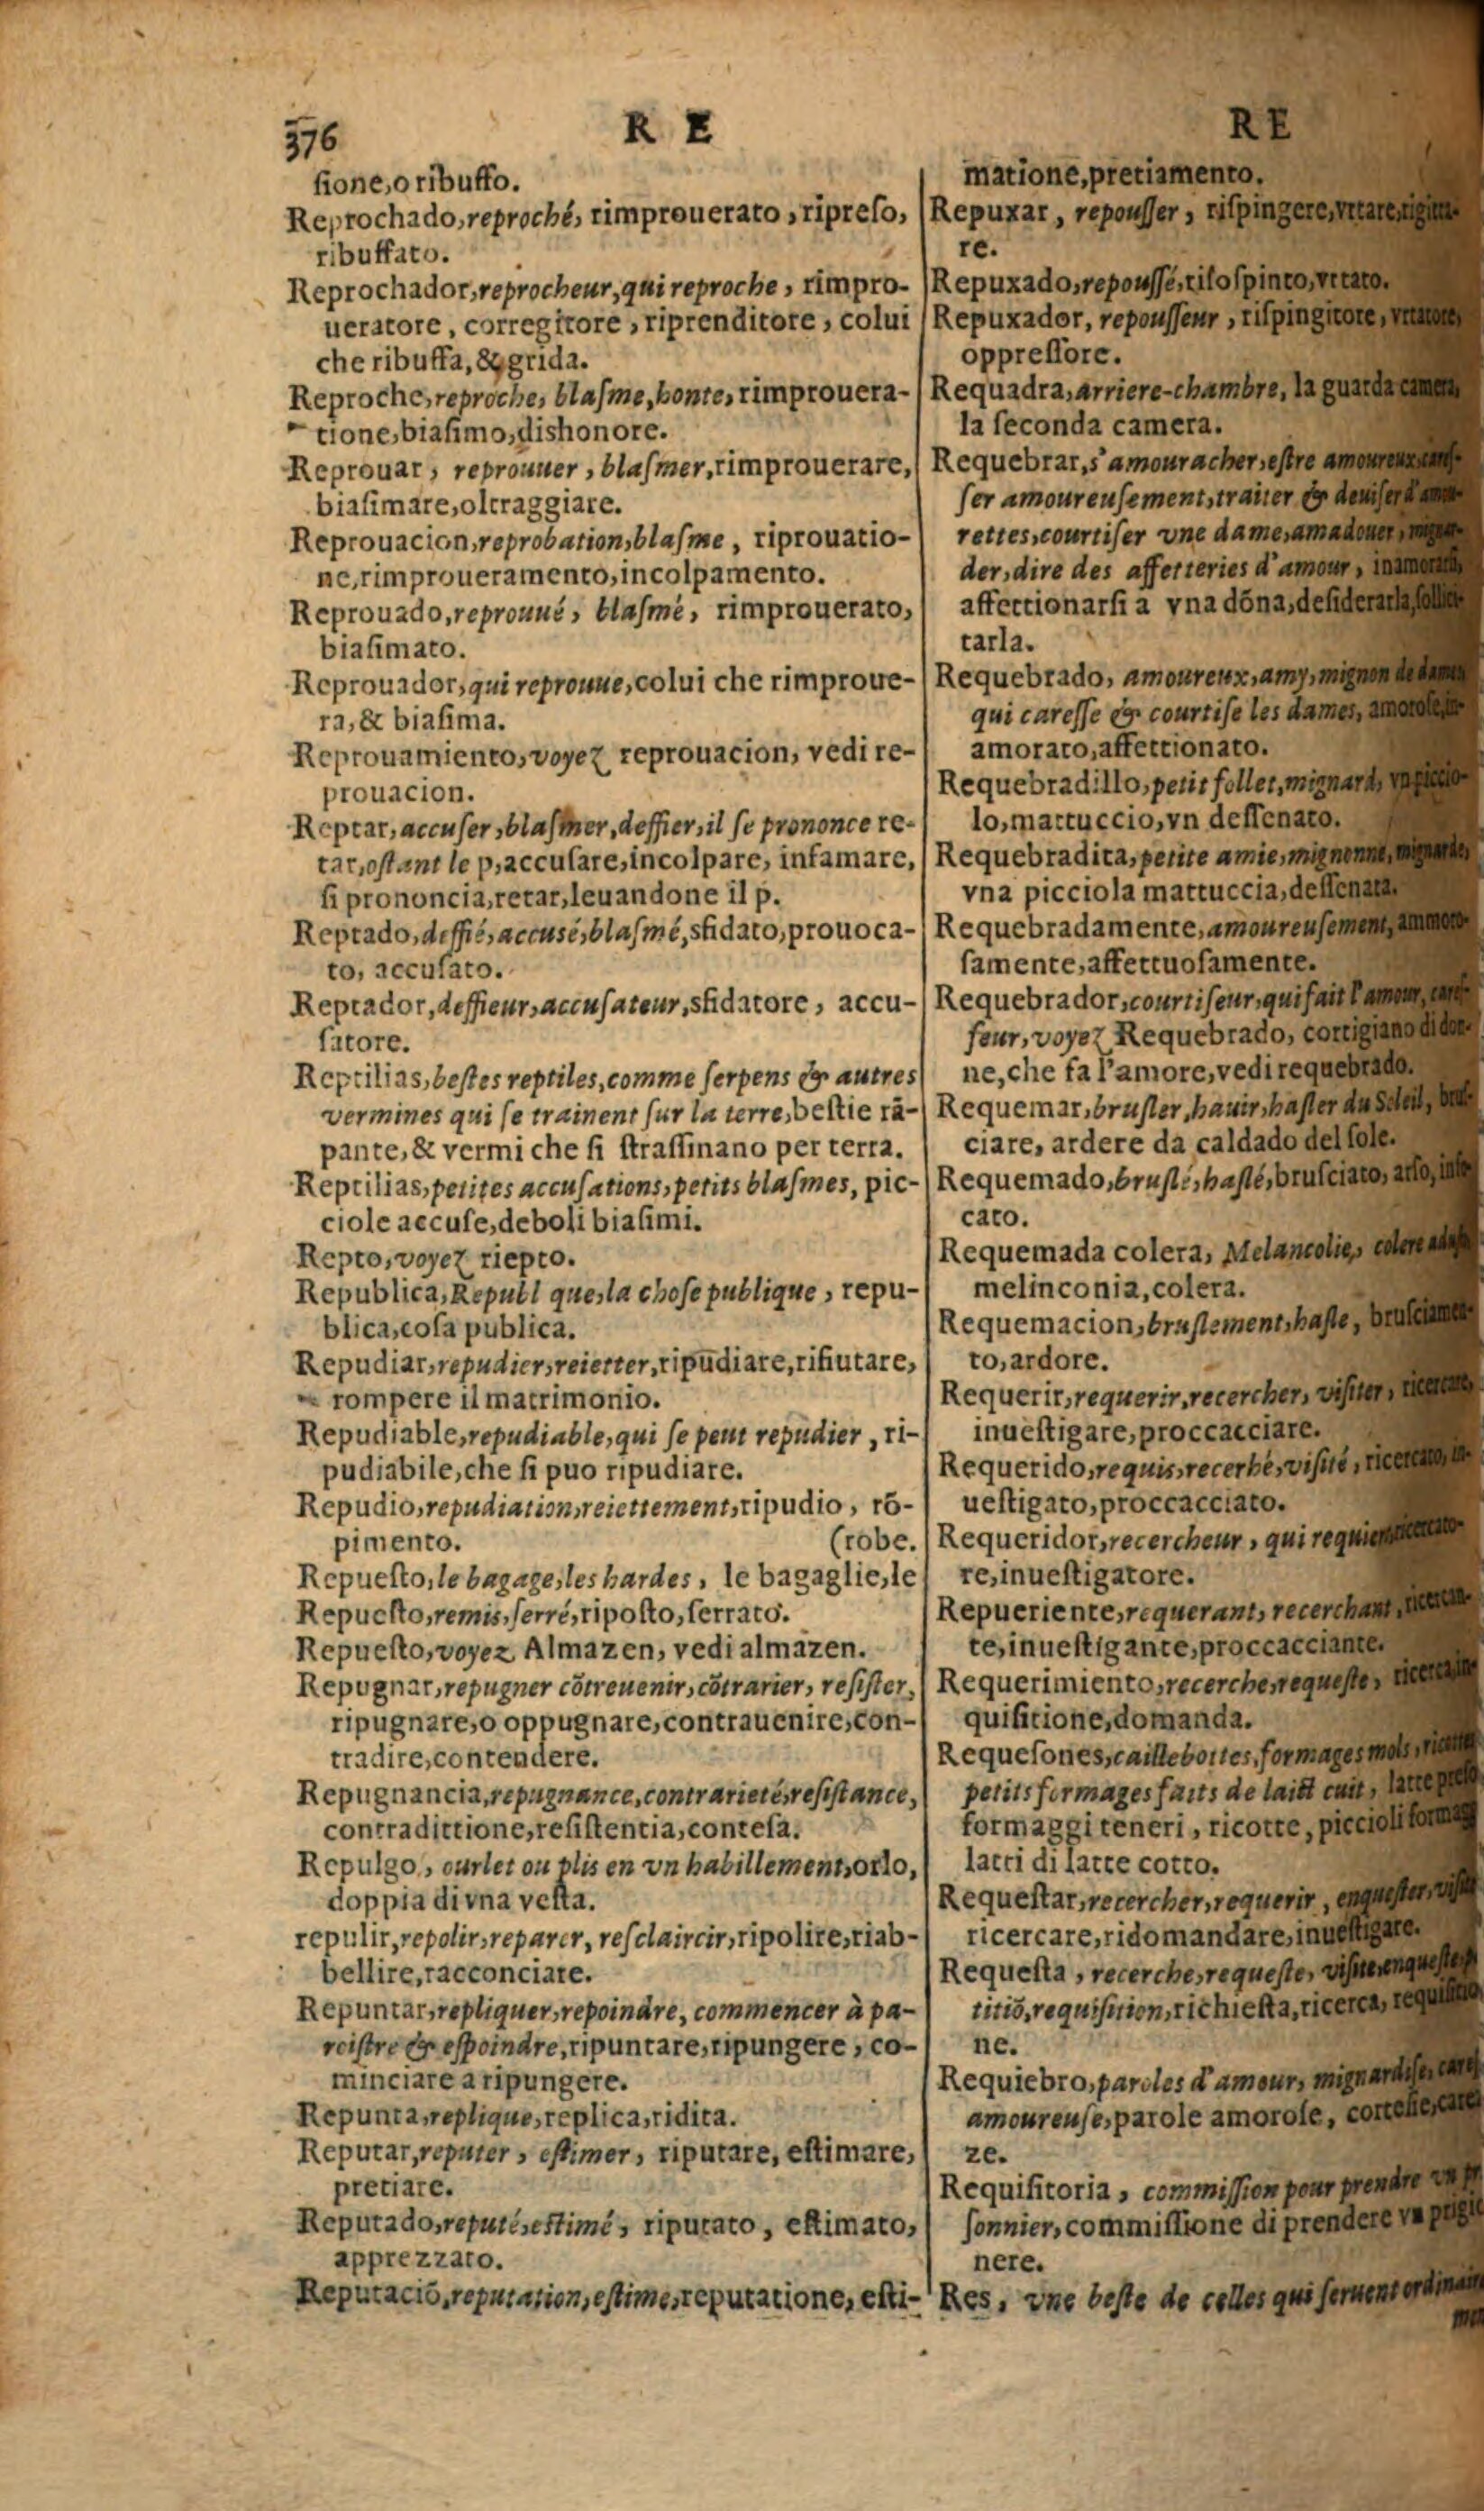 376
R E
sione,o ribuffo.
Reprochado,reproché, rimprouerato, ripreſo,
ribuffato.
Reprochador,reprocheur,qui reproche, rimpro-
ueratore, corregitore, riprenditore, colui
che ribuffa,& grida.
Reproche,reproche, blaſme,honte, rimprouera-
tione,biaſimo,dishonore.
Reprouar, reprouuer, blaſmer,rimprouerare,
biaſimare,oltraggiare.
Reprouacion,reprobation,blaſme, riprouatio-
ne,rimproueramento,incolpamento.
Reprouado,reprouué, blaſmé, rimprouerato,
biaſimato.
Reprouador,qui reprouue,colui che rimproue-
ra,& biaſima.
Reprouamiento,voyez reprouacion, vedi re-
prouacion.
Reptar,accuſer,blaſmer,deffier,il ſe prononce re-
tar,oſtant le p,accuſare,incolpare, infamare,
ſi prononcia,retar,leuandone il p.
Reptado,deffié,accusé,blaſmé,sfidato,prouoca-
to, accuſato.
Reptador,deffieur,accuſateur,sfidatore, accu-
ſatore.
Reptilias,beſtes reptiles,comme ſerpens & autres
vermines qui ſe trainent ſur la terre,beſtie rã-
pante,& vermi che ſi ſtraſſinano per terra.
Reptilias,petites accuſations,petits blaſmes, pic-
ciole accuſe,deboli biaſimi.
Repto,voyez riepto.
Republica,Republ que,la choſe publique, repu-
blica,coſa publica.
Repudiar,repudier,reietter,ripudiare,rifiutare,
rompere il matrimonio.
Repudiable,repudiable,qui ſe peut repudier, ri-
pudiabile,che ſi puo ripudiare.
Repudio,repudiation,reiettement,ripudio, rõ-
pimento. (robe.
Repueſto,le bagage,les hardes, le bagaglie,le
Repueſto,remis,ſerré,ripoſto,ſerrato.
Repueſto,voyez Almazen, vedi almazen.
Repugnar,repugner cõtreuenir,cõtrarier, reſiſter,
ripugnare,o oppugnare,contrauenire,con-
tradire,contendere.
Repugnancia,repugnance,contrarieté,reſiſtance,
contradittione,reſiſtentia,conteſa.
Repulgo, ourlet ou plis en vn habillement,orlo,
doppia di vna veſta.
repulir,repolir,reparer, reſclaircir,ripolire,riab-
bellire,racconciare.
Repuntar,repliquer,repoindre, commencer à pa-
roiſtre & eſpoindre,ripuntare,ripungere, co-
minciare a ripungere.
Repunta,replique,replica,ridita.
Reputar,reputer, eſtimer, riputare, eſtimare,
pretiare.
Reputado,reputé,eſtimé, riputato, eſtimato,
apprezzato.
Reputaciõ,reputation,eſtime,reputatione, eſti-
RE
matione,pretiamento.
Repuxar, repouſſer, riſpingere,vrtare,
re.
Repuxado,repouſſé,riſoſpinto,vrtato.
Repuxador, repouſſeur, riſpingitore, vrtatore,
oppreſſore.
Requadra,arriere-chambre, la guarda camera,
la ſeconda camera.
Requebrar,s'amouracher,eſtre amoureux,
ſer amoureuſement,traiter & deuiſer
rettes,courtiſer vne dame,amadouer,
der,dire des affetteries d'amour,
affettionarſi a vna dõna,deſiderarla,
tarla.
Requebrado, amoureux,amy,mignon de dames
qui careſſe & courtiſe les dames, amoroſo,
amorato,affettionato.
Requebradillo,petit follet,mignard,
lo,mattuccio,vn deſſenato.
Requebradita,petite amie,mignonne,mignarde,
vna picciola mattuccia,deſſenata.
Requebradamente,amoureuſement,
ſamente,affettuoſamente.
Requebrador,courtiſeur,qui fait l'amour,
ſeur,voyez Requebrado, cortigiano di don-
ne,che fa l'amore,vedi requebrado.
Requemar,bruſler,hauir,haſler du Soleil, bruſ-
ciare, ardere da caldado del ſole.
Requemado,bruſlé,haſlé,bruſciato, arſo,
cato.
Requemada colera, Melancolie, colere
melinconia,colera.
Requemacion,bruſlement,haſle, bruſciamen-
to,ardore.
Requerir,requerir,recercher, viſiter, ricercare,
inueſtigare,proccacciare.
Requerido,requis,recerhé,viſité, ricercato, in-
ueſtigato,proccacciato.
Requeridor,recercheur, qui requiert,ricercato-
re,inueſtigatore.
Repueriente,requerant, recerchant,
te,inueſtigante,proccacciante.
Requerimiento,recerche,requeſte,
quiſitione,domanda.
Requeſones,caillebottes,formages mols,
petits formages faits de laict cuit, latte
formaggi teneri, ricotte, piccioli
latti di latte cotto.
Requeſtar,recercher,requerir, enqueſter,
ricercare,ridomandare,inueſtigare.
Requeſta, recerche,requeſte,
titiõ,requiſition,richieſta,ricerca,
ne.
Requiebro,paroles d'amour, mignardiſe,
amoureuſe,parole amoroſe, corteſie,
ze.
Requiſitoria, commiſſion pour prendre
ſonnier,commiſſione di prendere
nere.
Res, vne beſte de celles qui ſeruent